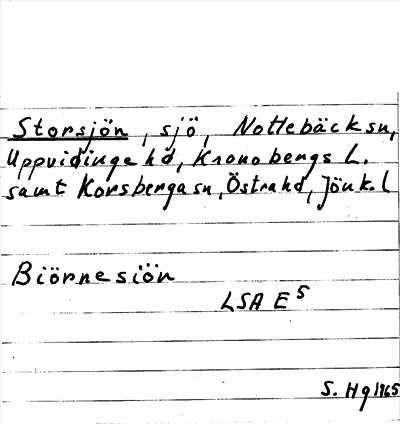 Storsjön, sjö, Nottebäck sn,
Uppvidinge hd, Kronobergs L.
samt Korsberga sn, Östra hd, Jönk. l
Biörnesiön
LSA E5
S. Hg 1965